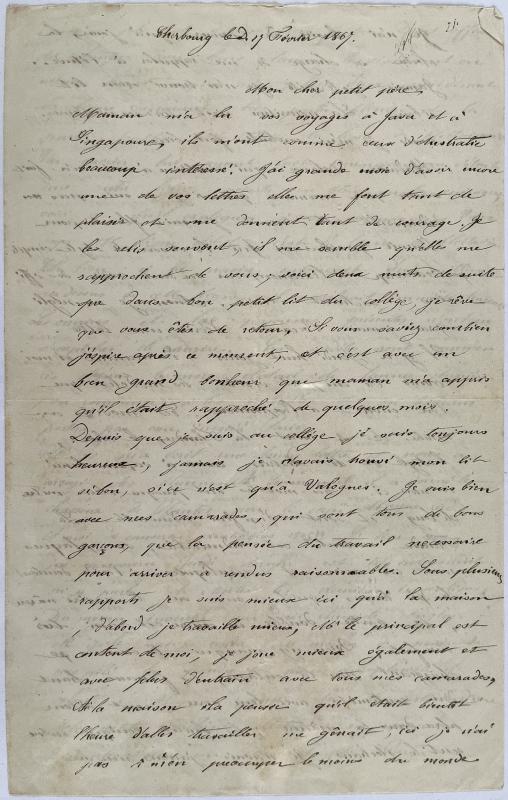 Cherbourg le 17 Février 1867.
Mon cher petit père,
Maman m'a lu vos voyages à Java et à
Singapoure, ils m'ont comme ceux d'Australie
beaucoup intéressé. J'ai grande envie d'avoir encore
une de vos lettres elles me font tant de
plaisir et me donnent tant de courage. Je
les relis souvent il me semble qu'elles me
rapprochent de vous ; voici deux nuits de suite
que dans bon petit lit du collège je rêve
que vous êtes de retour. Si vous saviez combien
j'aspire après ce moment, et c'est avec un
bien grand bonheur que maman m'a appris
qu'il était rapproché de quelques mois.
Depuis que je suis au collège je suis toujours
heureux, jamais je n'avais trouvé mon lit
si bon, si ce n'est qu'à Valognes. Je suis bien
avec mes camarades, qui sont tous de bons
garçons, que la pensée du travail nécessaire
pour arriver a rendus raisonnables. Sous plusieurs
rapports je suis mieux ici qu'à la maison
, d'abord je travaille mieux, Mr le principal est
content de moi, je joue mieux également et
avec plus d'entrain avec tous mes camarades,
A la maison la pensée qu'il était bientôt
l'heure d'aller travailler me gênait ; ici je n'ai
pas à m'en préoccuper le moins du monde